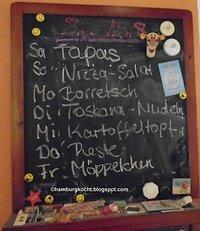 Sa Tapas
So Nizza-Salat
Mo Borretsch
Di: Toskana-Nudeln
Mi: Kartoffeltopf
Do Reste
Fr: Möppelchen
©hamburgkocht.blogspot.com